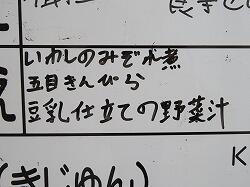 いわしのみぞれ煮
五目きんぴら
豆乳仕立ての野菜汁
(きじゅん)
K